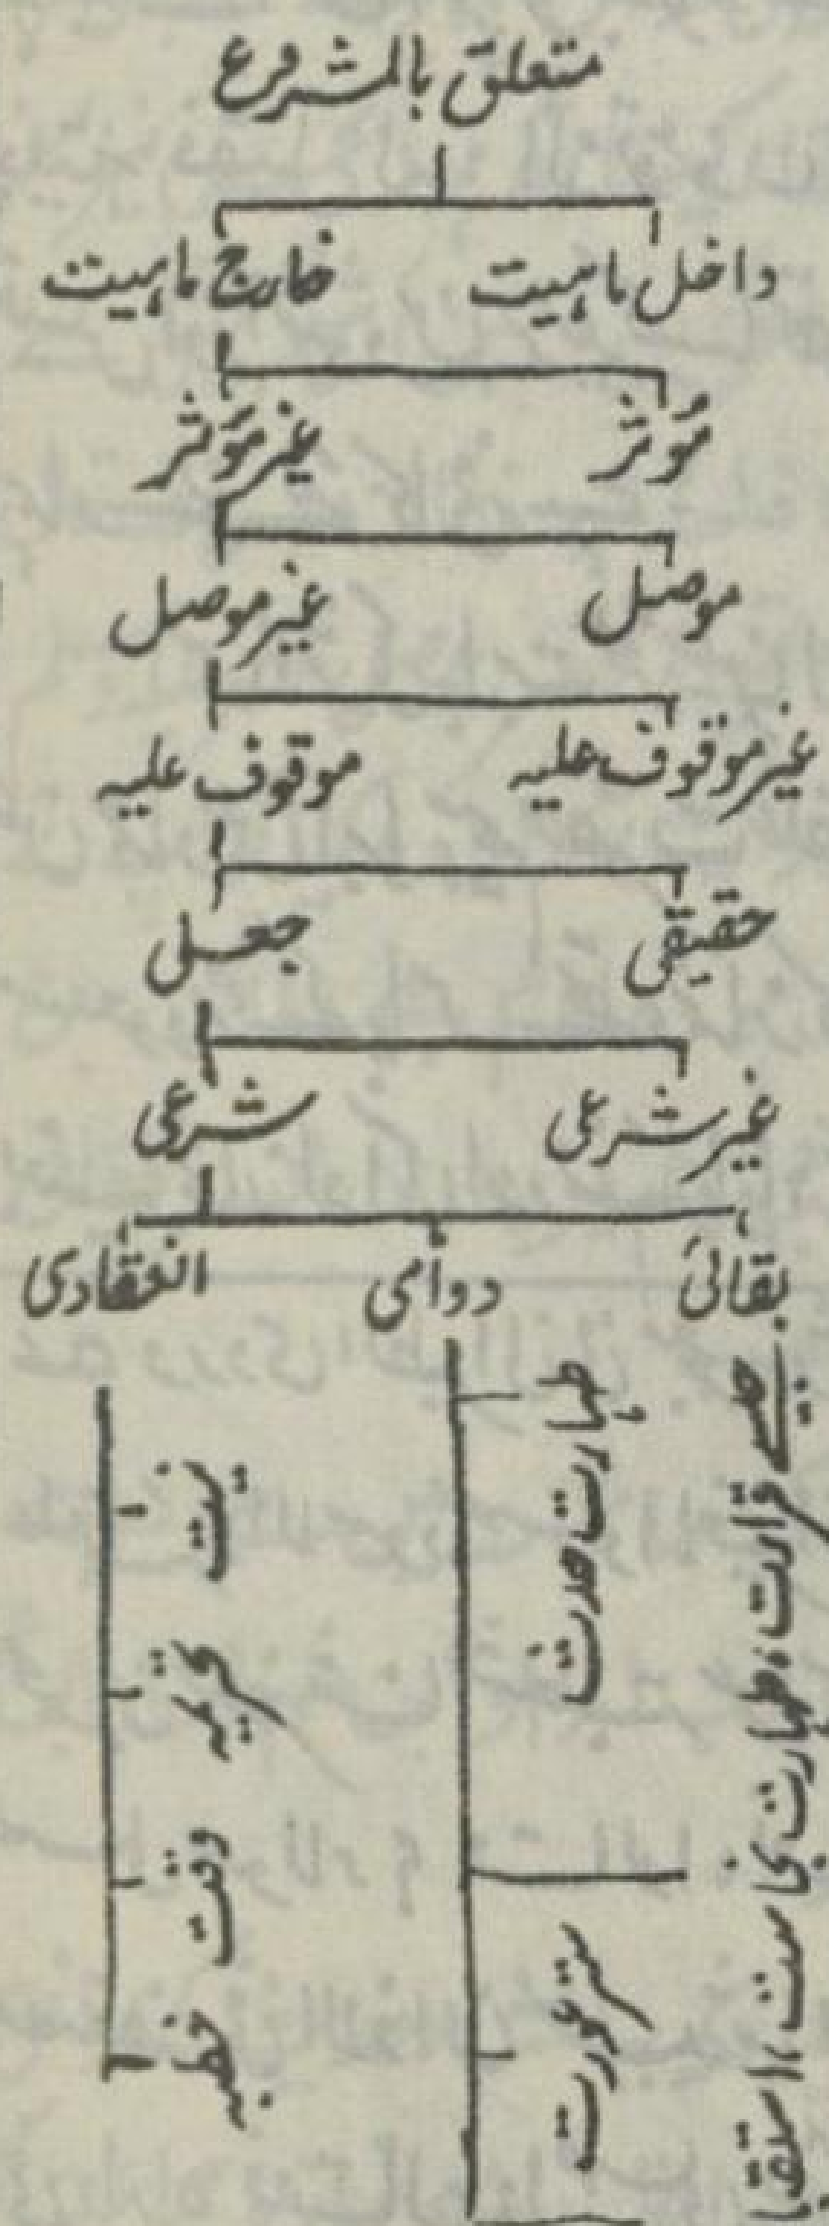 متعلق بالمشروع
داخل ماہیت خارج ماہیت
مؤثر غیر مؤثر
موصل غیر موصل
غیر موقوف علیہ موقوف علیہ
حقیقی جعلی
غیر شرعی شرعی
بقائی دوامی انعقادی
جیسے قرارت، طہارت نجاست، استقبا
طہارت حدث
ستر عورت
نیت
تحریمہ
وقت
خطبہ